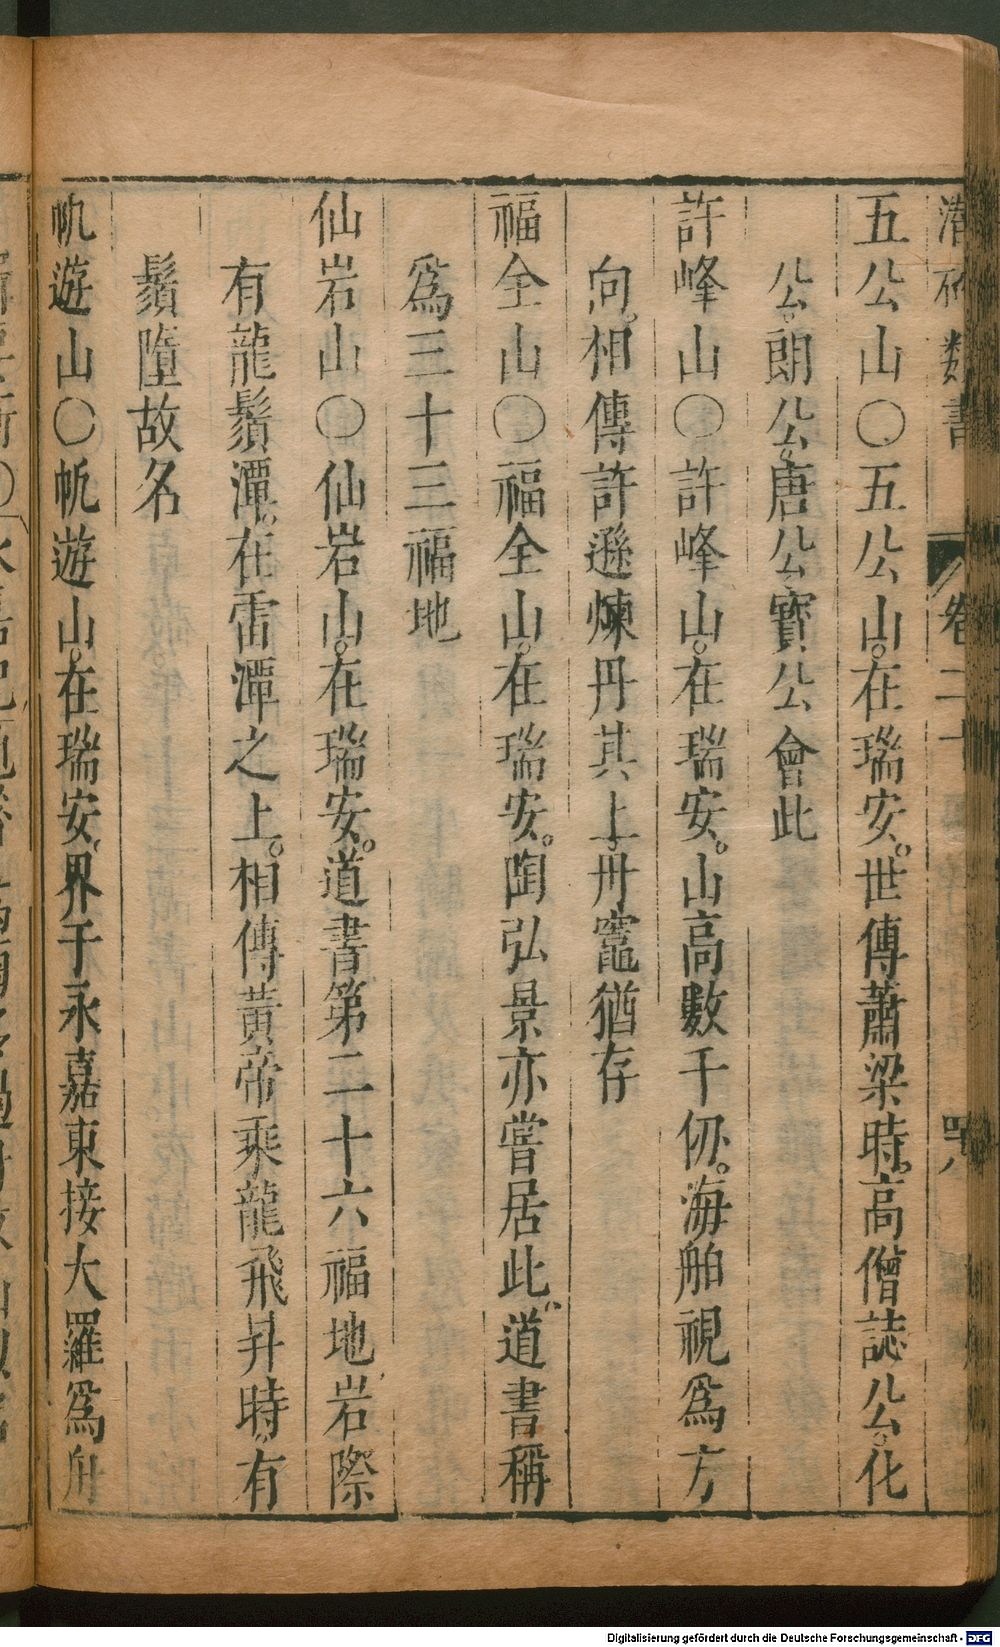 潛確類書
卷二十
五公山○五公山。在瑞安。世傳蕭梁時。高僧誌公。化
公。朗公。唐公寶公會此
許峰山○許峰山。在瑞安。山高數千仞。海舶視為方
向。相傳許遜煉丹其上。丹竈猶存
福全山○福全山。在瑞安。陶弘景亦嘗居此、道書稱
為三十三福地
仙岩山○仙岩山。在瑞安。道書第二十六福地岩際
有龍鬚潭。在雷潭之上。相傳黃帝乘龍飛昇時。有
鬚墮故名
帆遊山○帆遊山。在瑞安、界于永嘉東接大羅為舟
Digitalisierung gefördert durch die Deutsche Forschungsgemeinschaft - DFG